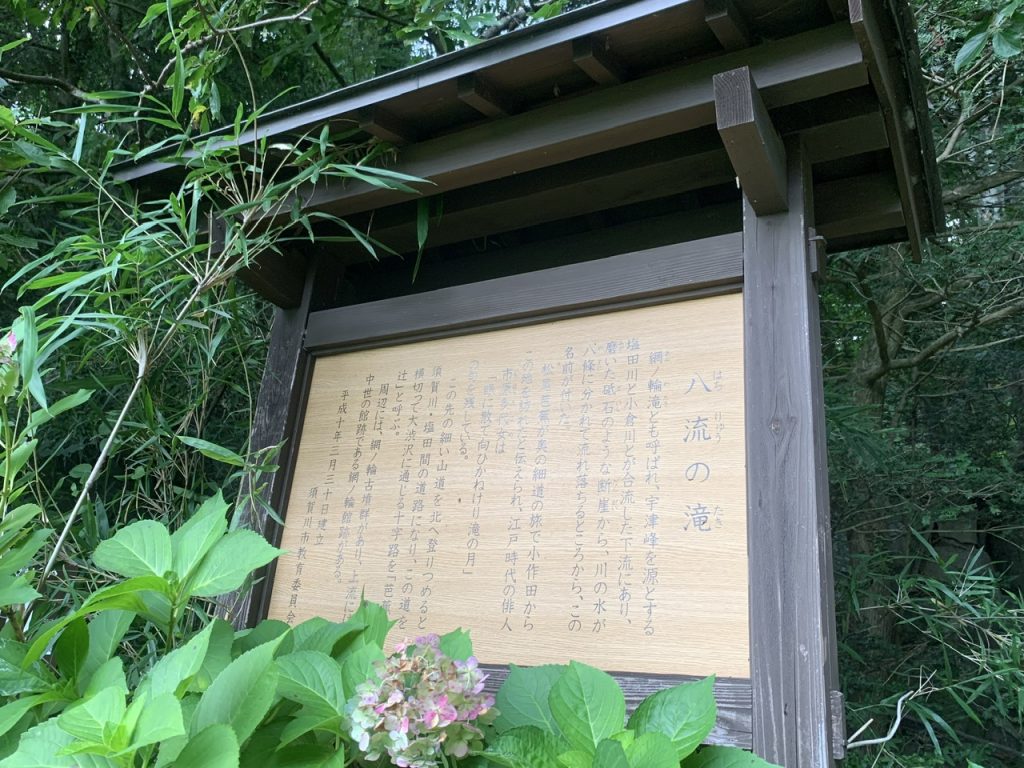 八流の滝
はち りゅう たき
網ノ輪滝とも呼ばれ、宇津峰を源とする
塩田川と小倉川とが合流した下流にあり、
磨いた砥石のような断崖から、川の水が
八條に分かれて流れ落ちるところから、この
名前が付いた。
松尾芭蕉が奥の細道の旅で小作田から
この地を訪れたと伝えられ、江戸時代の俳人
市原多代女は
に散て向ひかねけり滝の月」
の句を残している。
この先の細い山道を北へ登りつめると
須賀川・塩田間の道路になり、この道を
横切って大渋沢に通じる十字路を「芭蕉
辻」と呼ぶ。
周辺には、網ノ輪古墳群があり、上流に
中世の館跡である網ノ輪館跡がある。
平成十年三月三十日建立
須賀川市教育委員会